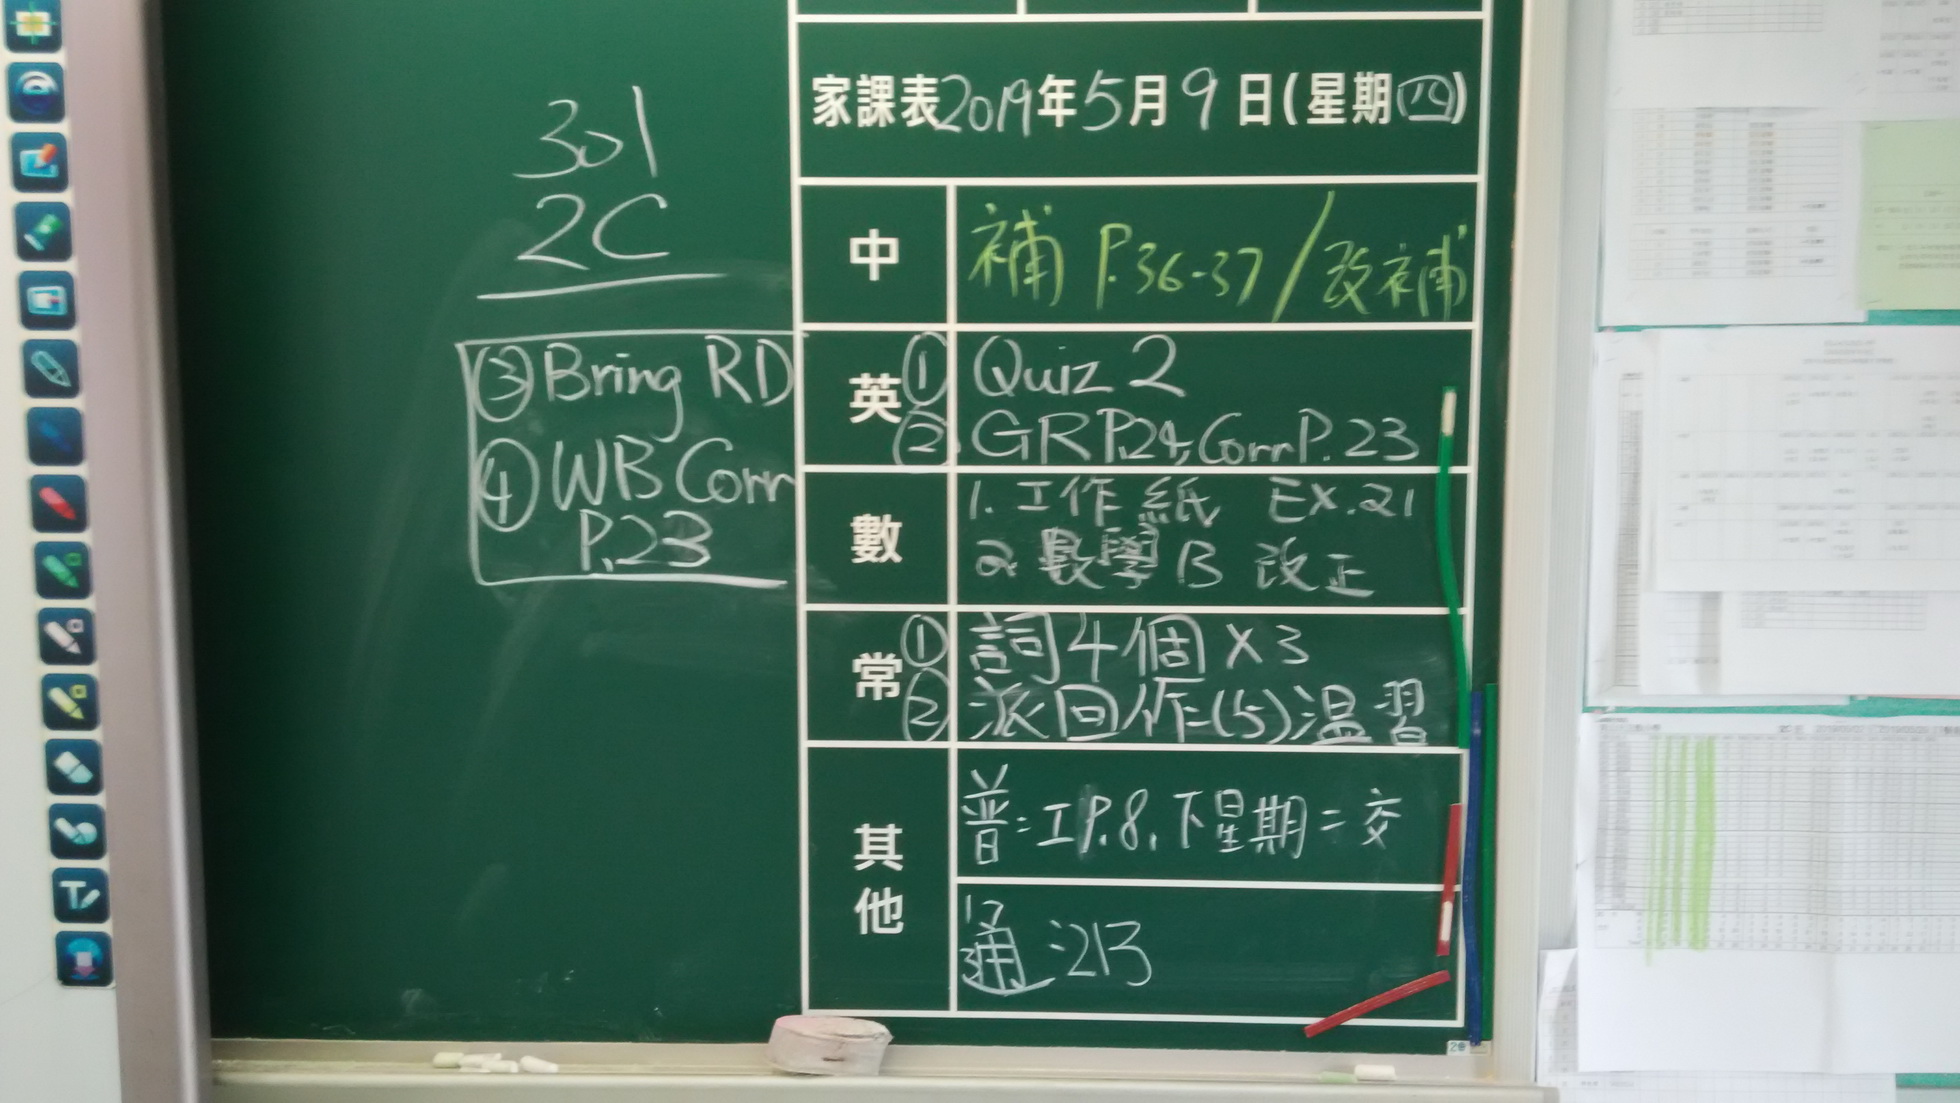 301
2C
家課表2019年5月9日(星期四)
中
補 P.36-37/改補
英
① Quiz 2
② GR P.24, Corr P.23
③ Bring RD
④ WB Corr
P.23
數
1. 工作紙 EX.21
2. 數學B 改正
常
① 詞4個 x 3
② 派回作(5)温習
其他
普:工P.8,下星期二交
通:213